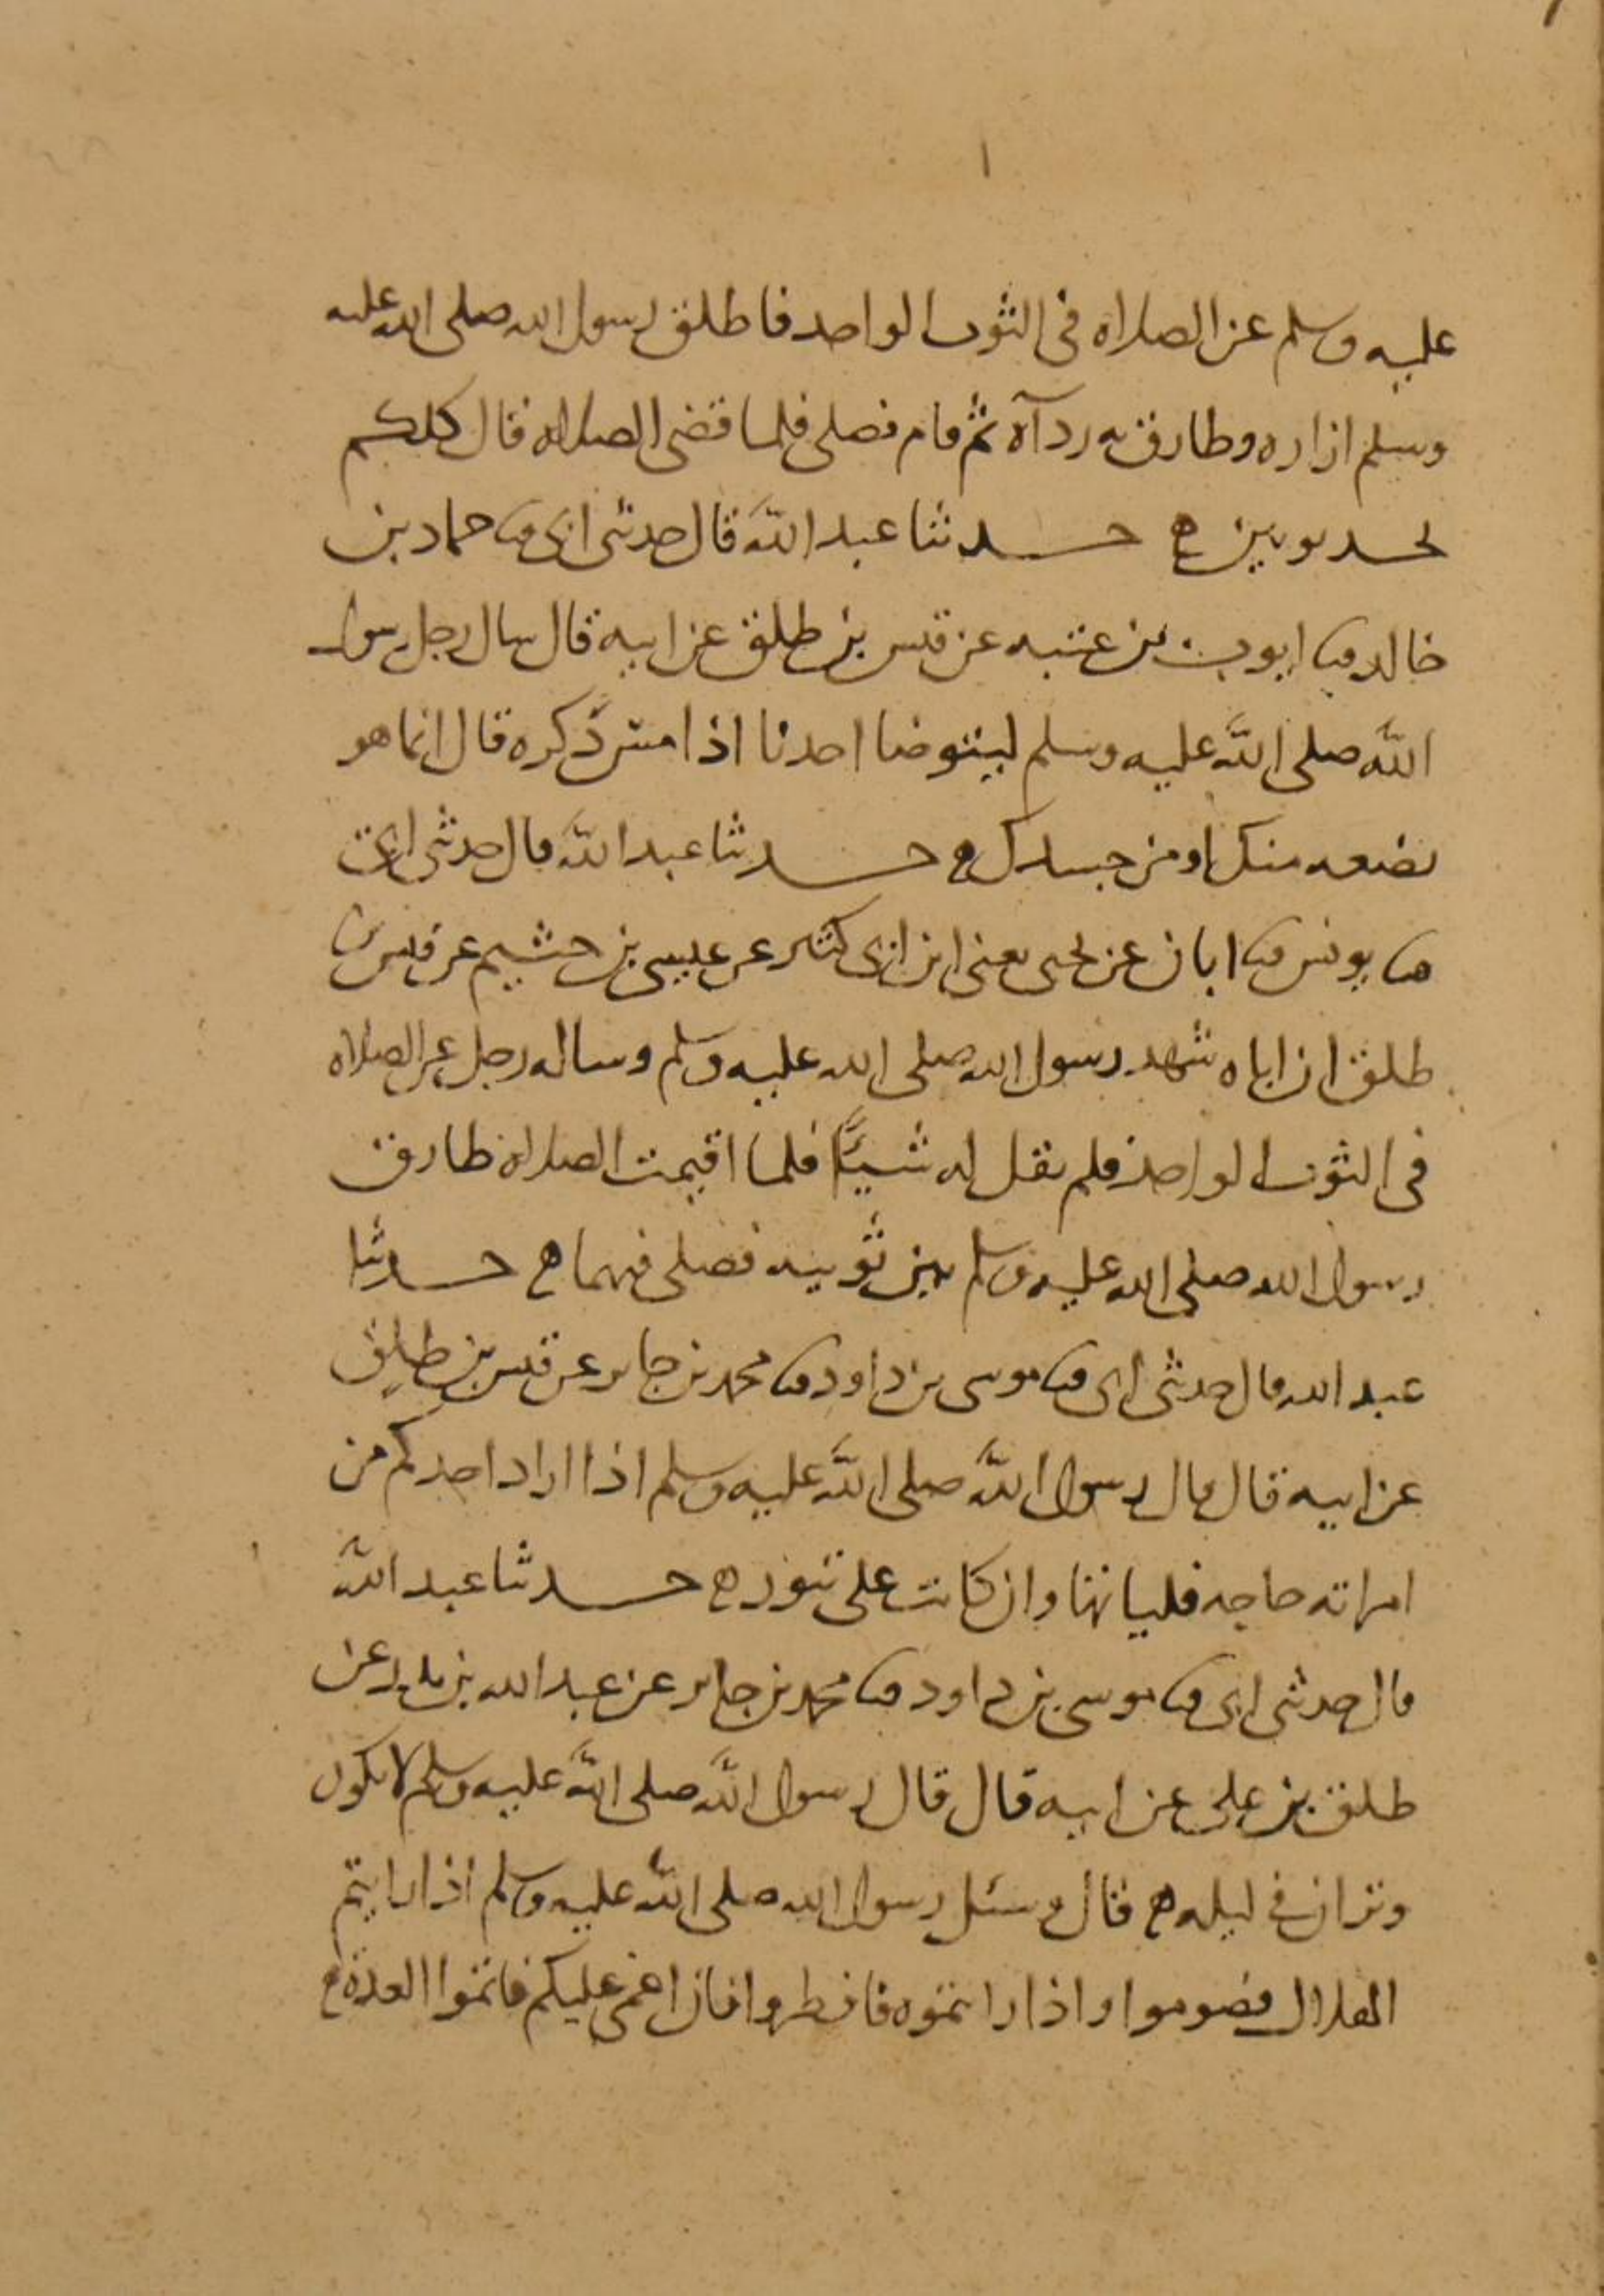 عليه وسلم عن الصلاه فى الثوب الواحد فاطلق رسول الله صلى الله عليه
وسلم ازاره وطارق به رداه ثم قام فصلى فلما قضى الصلاه قال كلكم
يجد ثوبين ه حدثنا عبد الله قال حدثنى ابى ثنا حماد بن
خالد ثنا ايوب بن عتبه عن قيس بن طلق عن ابيه قال سال رجل رسول
الله صلى الله عليه وسلم ايتوضا احدنا اذا مس ذكره قال انما هو
بضعه منك او من جسدك ه حدثنا عبد الله قال حدثنى ابى
ثنا يونس ثنا ابان عن يحيى يعنى ابن ابى كثير عن عيسى بن خثيم عن قيس بن
طلق ان اباه شهد رسول الله صلى الله عليه وسلم وساله رجل عن الصلاه
فى الثوب الواحد فلم يقل له شيئا فلما اقيمت الصلاه طارق
رسول الله صلى الله عليه وسلم بين ثوبيه فصلى فيهما ه حدثنا
عبد الله قال حدثنى ابى ثنا موسى بن داود ثنا محمد بن جابر عن قيس بن طلق
عن ابيه قال قال رسول الله صلى الله عليه وسلم اذا اراد احدكم من
امراته حاجه فلياتها وان كانت على تنور ه حدثنا عبد الله
قال حدثنى ابى ثنا موسى بن داود ثنا محمد بن جابر عن عبد الله بن بدر عن
طلق بن على عن ابيه قال قال رسول الله صلى الله عليه وسلم لا يكون
وتران فى ليله ه قال وسئل رسول الله صلى الله عليه وسلم اذا رايتم
الهلال فصوموا واذا رايتموه فافطروا فان اغمى عليكم فاتموا العدة ه